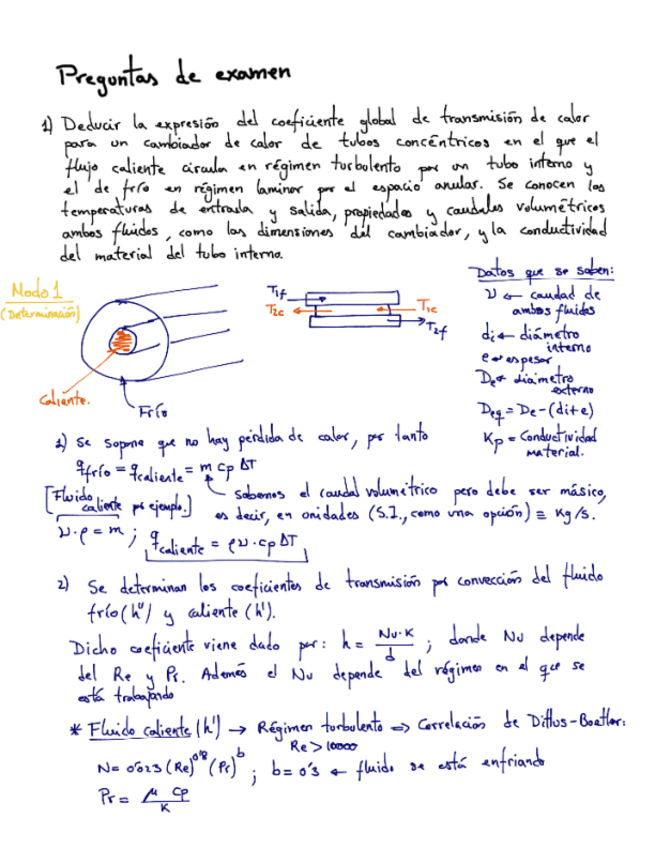 Preguntas de examen
1) Deducir la expresión del coeficiente global de transmisión de calor
para un cambiador de calor de tubos concéntricos en el que el
flujo caliente circula en régimen turbolento por un tubo interno y
el de frío en régimen laminar por el espacio anular. Se conocen las
temperaturas de entrada y salida, propiedades y caudales volumétricos
ambos fluidos, como las dimensiones del cambiador, y la conductividad
del material del tubo interno.
Modo 1
(Determinación)
Caliente.
Frío
T1f
T2c
T1c
T2f
Datos que se saben:
ν ← caudad de
ambos fluidos
di ← diámetro
interno
e ← espesor
De ← diámetro
externo
Deq = De - (di+e)
Kp = Conductividad
material.
1) Se supone que no hay pérdida de calor, por tanto
qfrío = qcaliente = m cp ΔT
[Fluido caliente por ejemplo.]
Sabemos el caudal volumétrico pero debe ser másico,
es decir, en unidades (S.I., como una opción) ≡ Kg/s.
ν·ρ = m ; qcaliente = ρν·cp ΔT
2) Se determinan los coeficientes de transmisión por convección del fluido
frío (h'') y caliente (h').
Dicho coeficiente viene dado por: h = Nu·K / d ; donde Nu depende
del Re y Pr. Además el Nu depende del régimen en el que se
está trabajando
* Fluido caliente (h') → Régimen turbolento ⇒ Correlación de Dittus-Boetler:
Re > 10000
N = 0'023 (Re)^0'8 (Pr)^b ; b = 0'3 ← fluido se está enfriando
Pr = μ cp / K